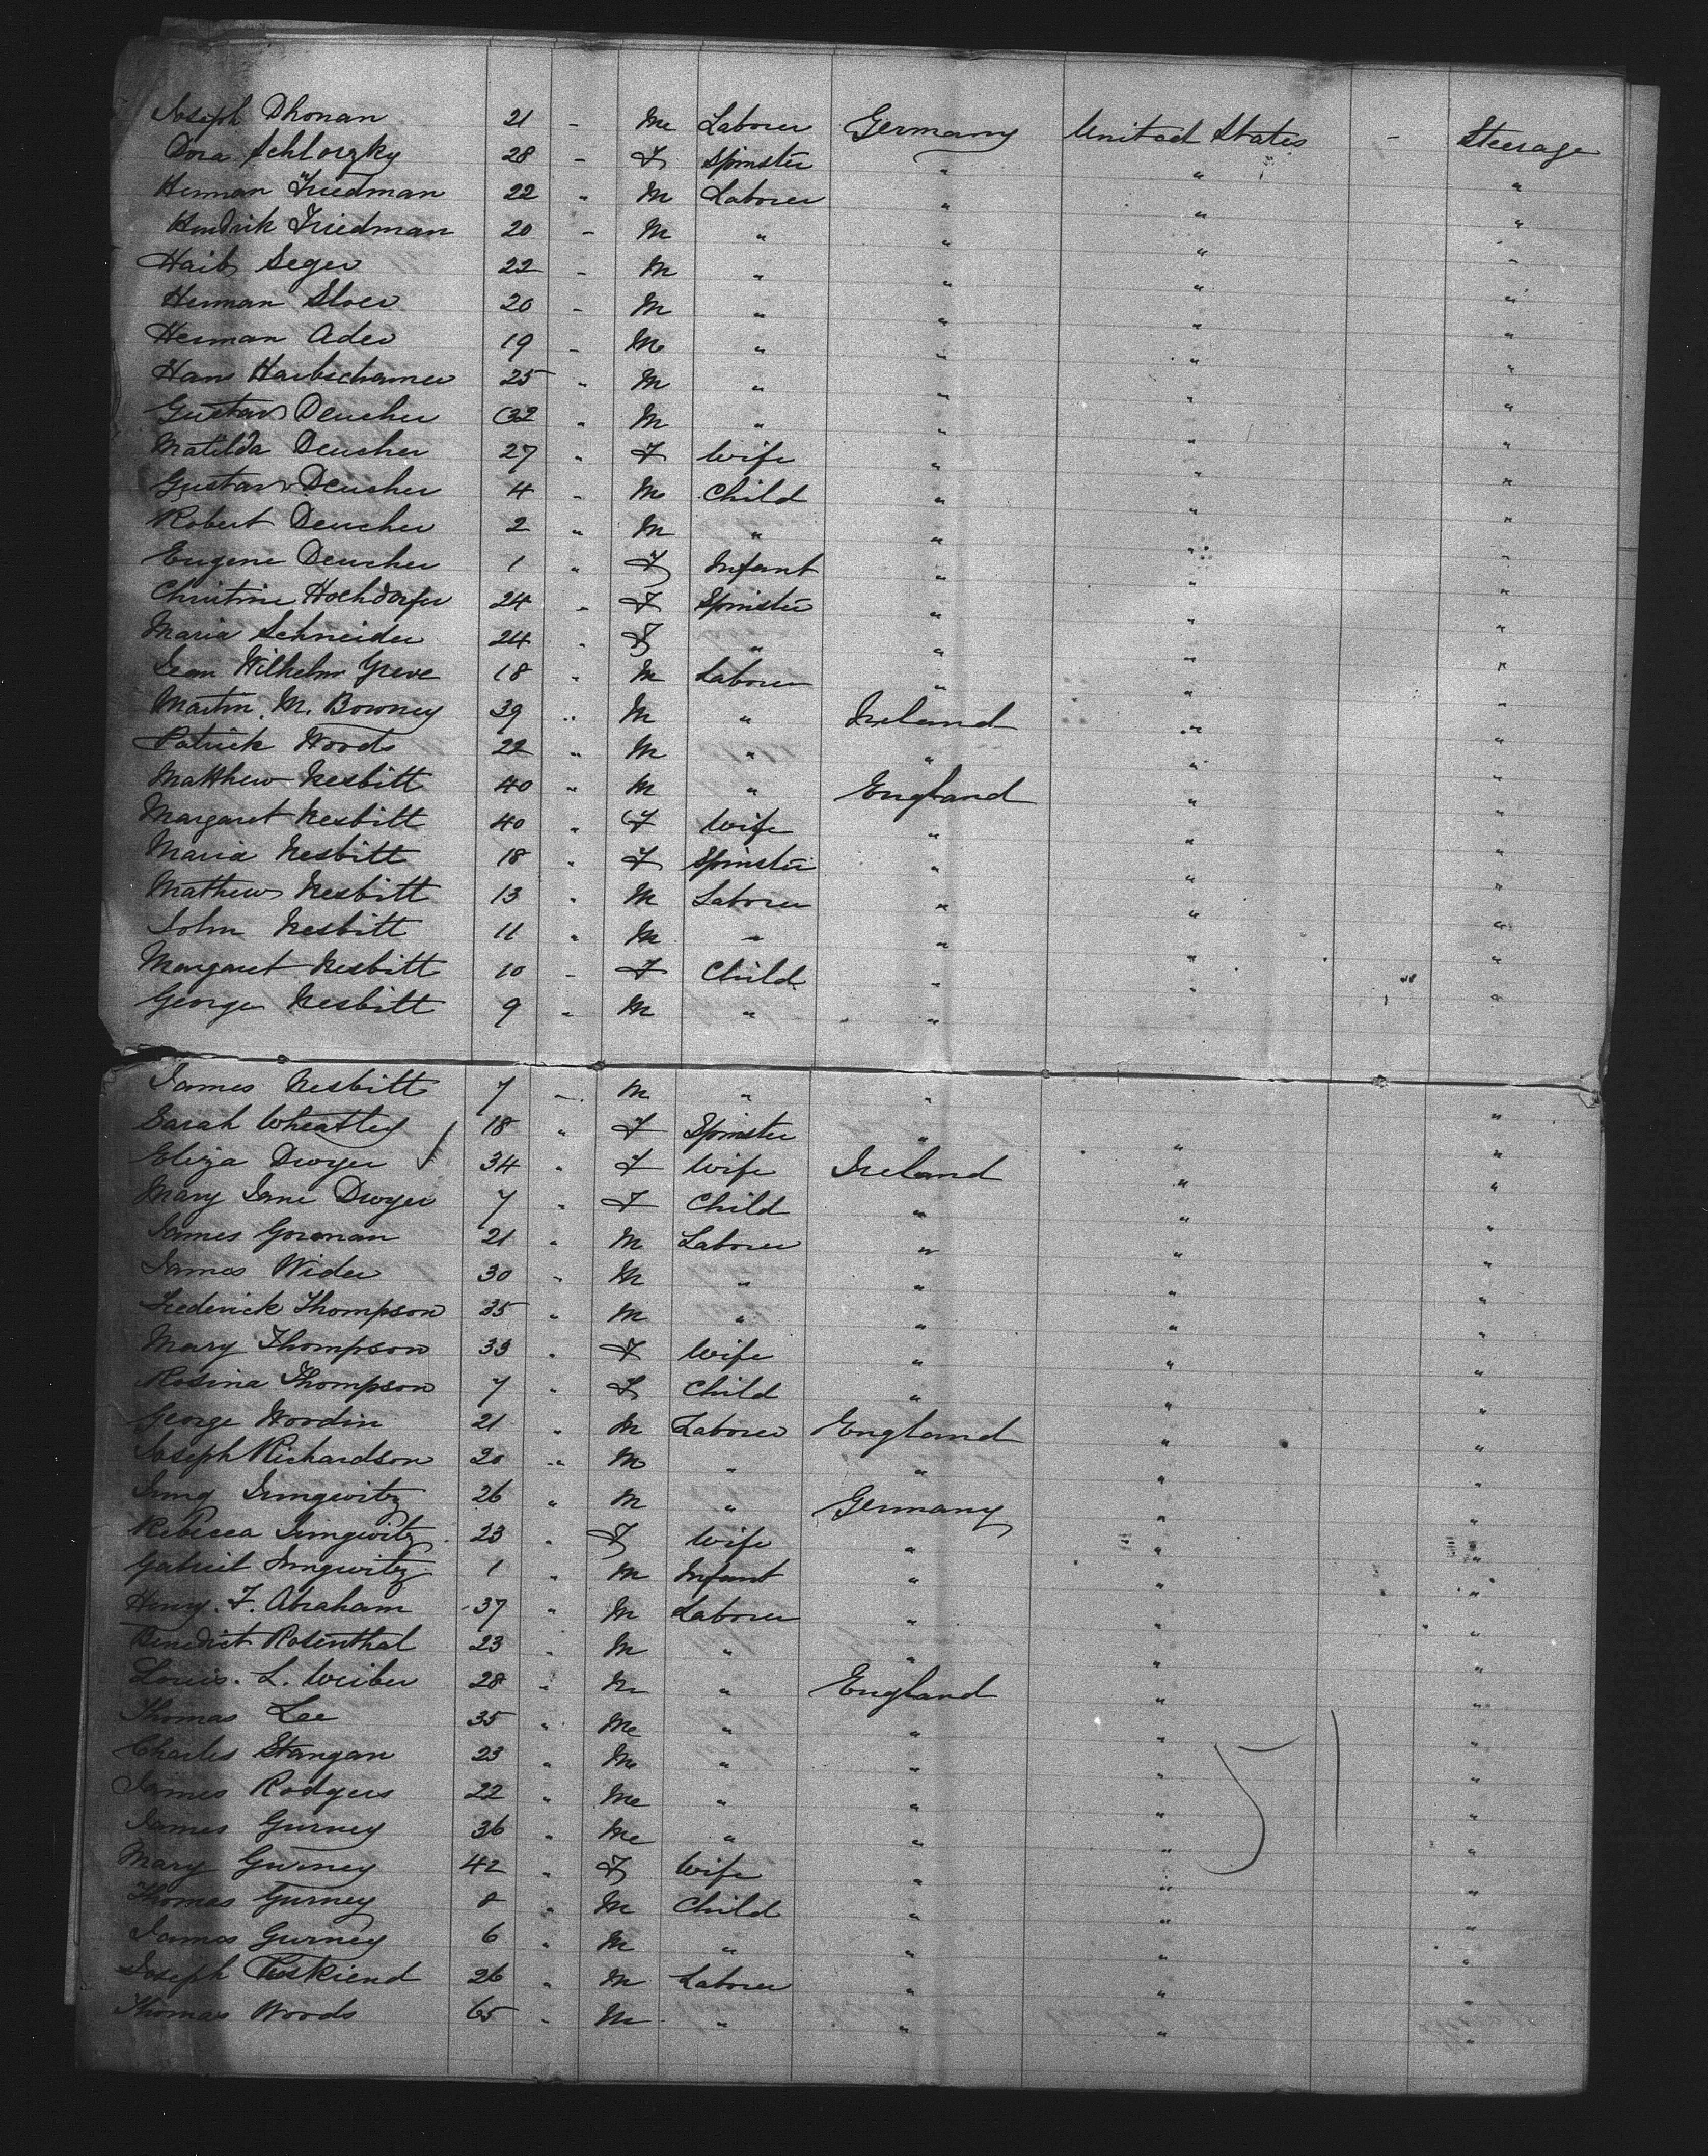 Joseph Dhonan 21 - M Laborer Germany United States - Steerage
Dora Schlorzky 28 - F Spinster " " "
Herman Friedman 22 " M Laborer " " "
Hendrik Friedman 20 - M " " " "
Haib Seger 22 - M " " " "
Herman Sloer 20 - M " " " "
Herman Ader 19 - M " " " "
Hans Harbschamer 25 " M " " " "
Gustav Deucher 32 " M " " " "
Matilda Deucher 27 " F Wife " " "
Gustav Deucher 4 - M Child " " "
Robert Deucher 2 " M " " " "
Eugene Deucher 1 " F Infant " " "
Christine Hochdorfer 24 " F Spinster " " "
Maria Schneider 24 " F " " " "
Jean Wilhelm Greve 18 " M Laborer " " "
Martin. M. Bowney 39 " M " Ireland " "
Patrick Woods 22 " M " " " "
Matthew Nesbitt 40 " M " England " "
Margaret Nesbitt 40 " F Wife " " "
Maria Nesbitt 18 " F Spinster " " "
Mathew Nesbitt 13 " M Laborer " " "
John Nesbitt 11 " M " " " "
Margaret Nesbitt 10 - F Child " " "
George Nesbitt 9 " M " "
James Nesbitt 7 - M " " "
Sarah Wheatley 18 " F Spinster " " "
Eliza Dwyer 34 " F Wife Ireland " "
Mary Jane Dwyer 7 " F Child " " "
James Gorman 21 " M Laborer " " "
James Wider 30 " M " " " "
Frederick Thompson 35 " M " " " "
Mary Thompson 33 " F Wife " " "
Rosina Thompson 7 " F Child " " "
George Woodin 21 " M Laborer England " "
Joseph Richardson 20 " M " " " "
Jung Jungwitz 26 " M " Germany " "
Rebecca Jungwitz 23 " F Wife " " "
Gabriel Jungwitz 1 " M Infant " " "
Henry. F. Abraham 37 " M Laborer " " "
Benedict Rosenthal 23 " M " " " "
Louis. L. Weiber 28 " M " England " "
Thomas Lee 35 " M " " " "
Charles Stangan 23 " M " " " "
James Rodgers 22 " M " " " "
James Gurney 36 " M " " " "
Mary Gurney 42 " F Wife " " "
Thomas Gurney 8 " M Child " " "
James Gurney 6 " M " " " "
Joseph 26 " M Laborer " "
Thomas Woods 65 " M " " " "
51